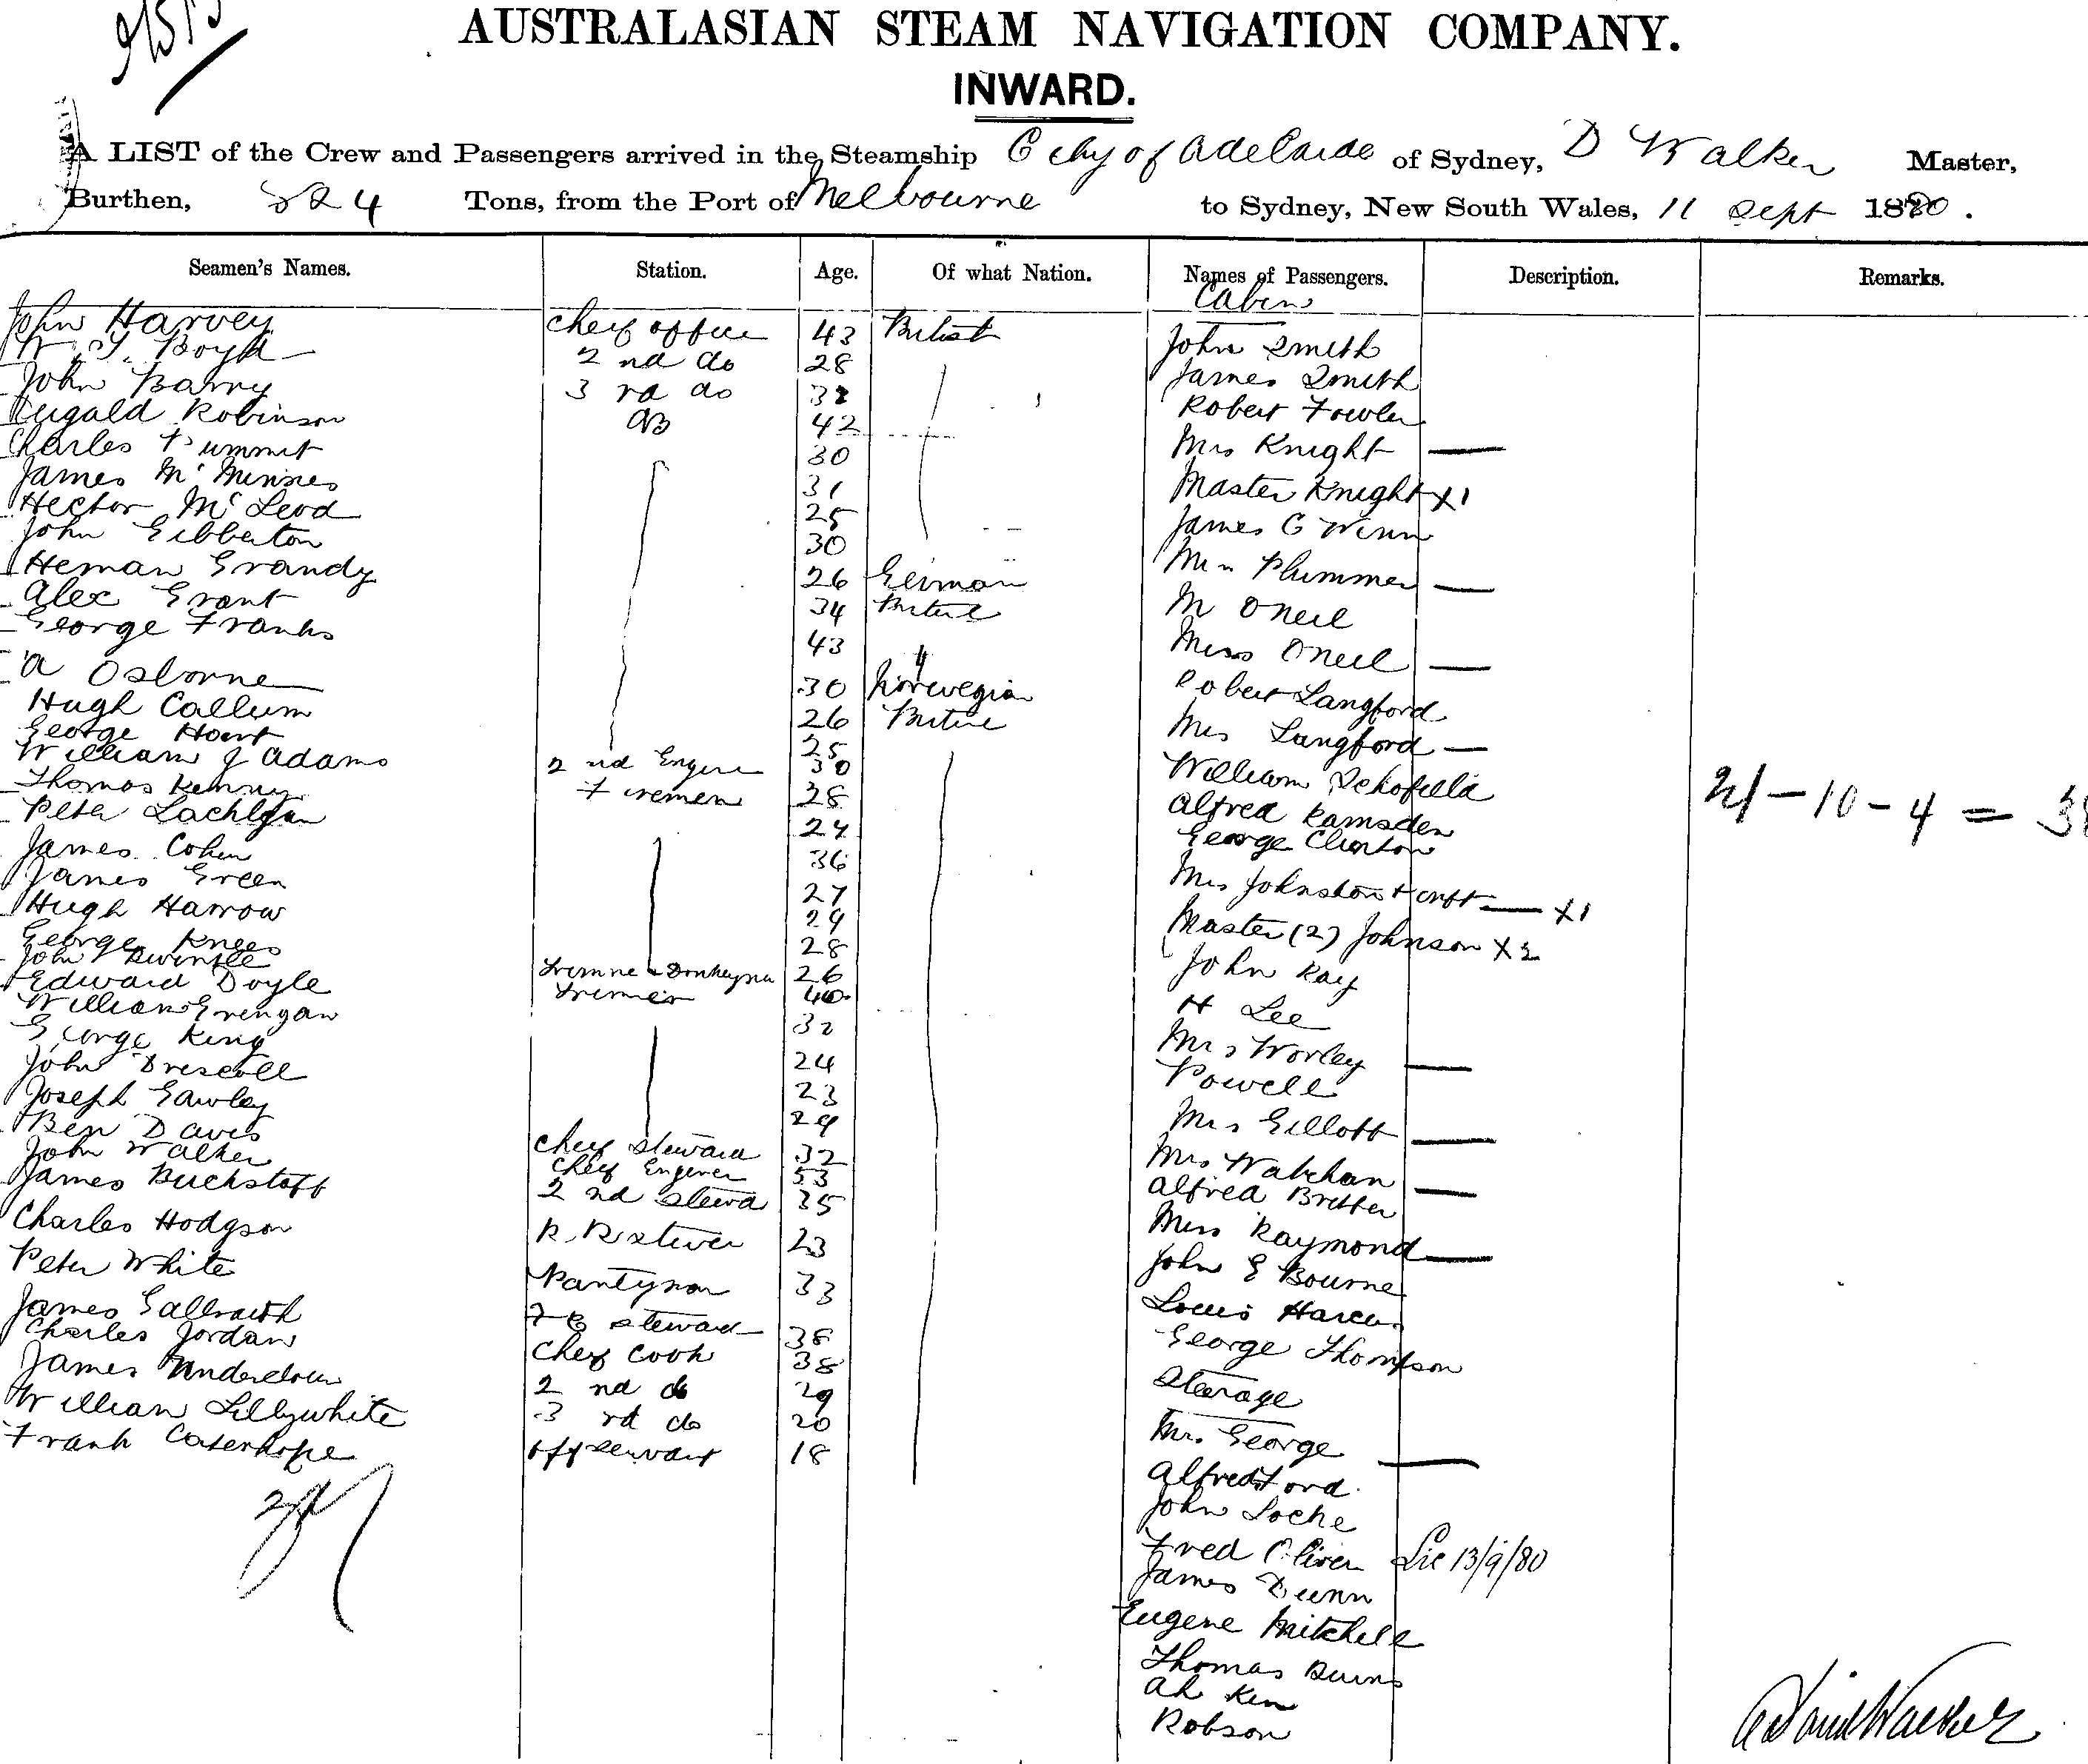 AUSTRALASIAN STEAM NAVIGATION COMPANY.
INWARD.
A LIST of the Crew and Passengers arrived in the Steamship City of Adelaide of Sydney, D Walker Master,
Burthen, 824 Tons, from the Port of Melbourne to Sydney, New South Wales, 11 Sept 1880.
Seamen's Names. Station. Age. Of what Nation. Names of Passengers. Description. Remarks.
Cabin
John Harvey Cheif officer 43 British John Smith
W. Boyd 2nd do 28 James Smith
John Barry 3rd do 32 Robert Fowler
Dugald Robinson AB 42 Mrs Knight —
Charles Pummit 30 Master Knight x1
James McMinnes 31 James C Wenn
Hector McLeod 25 Plummer —
John Gibberton 30 M O'Neil
Heman Grandy 26 German Miss O'Neil —
Alex Grant 34 Robert Langford
George Franks 43 Mrs Langford —
A Osborne 30 Norwegian William Schofield
Hugh Callum 26 Alfred Ramsden
George Hoart 25 George Clinton
William J Adams 2nd Engineer 30 Mrs Johnston + — x1
Thomas Kenny Firemen 28 Master (2) Johnson x2
Peter Lachlan 24 John Ray
James Cohen 36 H Lee
James Green 27 Mrs Worley —
Hugh Harrow 29 Powell
George Knees 28 Mrs Gillott —
John 26 Mrs —
Edward Doyle Trimer 40 Alfred Britter
William 32 Miss Raymond —
George King 24 John E Bourne
John Driscoll 23 Louis
Joseph Gawley 29 George Thompson
Ben Davis Cheif Steward 32 Steerage
John Walker Cheif Engener 53 Mr. George —
James Buckstaff 2nd Stewd 35 Alfred Ford
Charles Hodgson 23 John Locke
Peter White Pantryman 33 Fred Oliver Lie 13/9/80
James Galbraith Steward 38 James Dunn
Charles Jordan Cheif Cook 38 Eugene Mitchell
James Underdown 2nd do 29 Thomas Burns
William Lillywhite 3rd do 20 Ah Kem
Frank off servant 18 Robson
21 – 10 – 4 =
David Walker